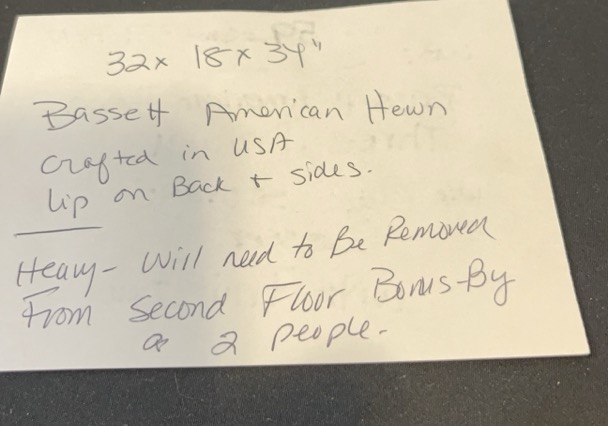 32x 18x 34"
Bassett American Hewn
crafted in USA
lip on Back + sides.
Heavy- Will need to Be Removed
From Second Floor Bonus-By
2 people.